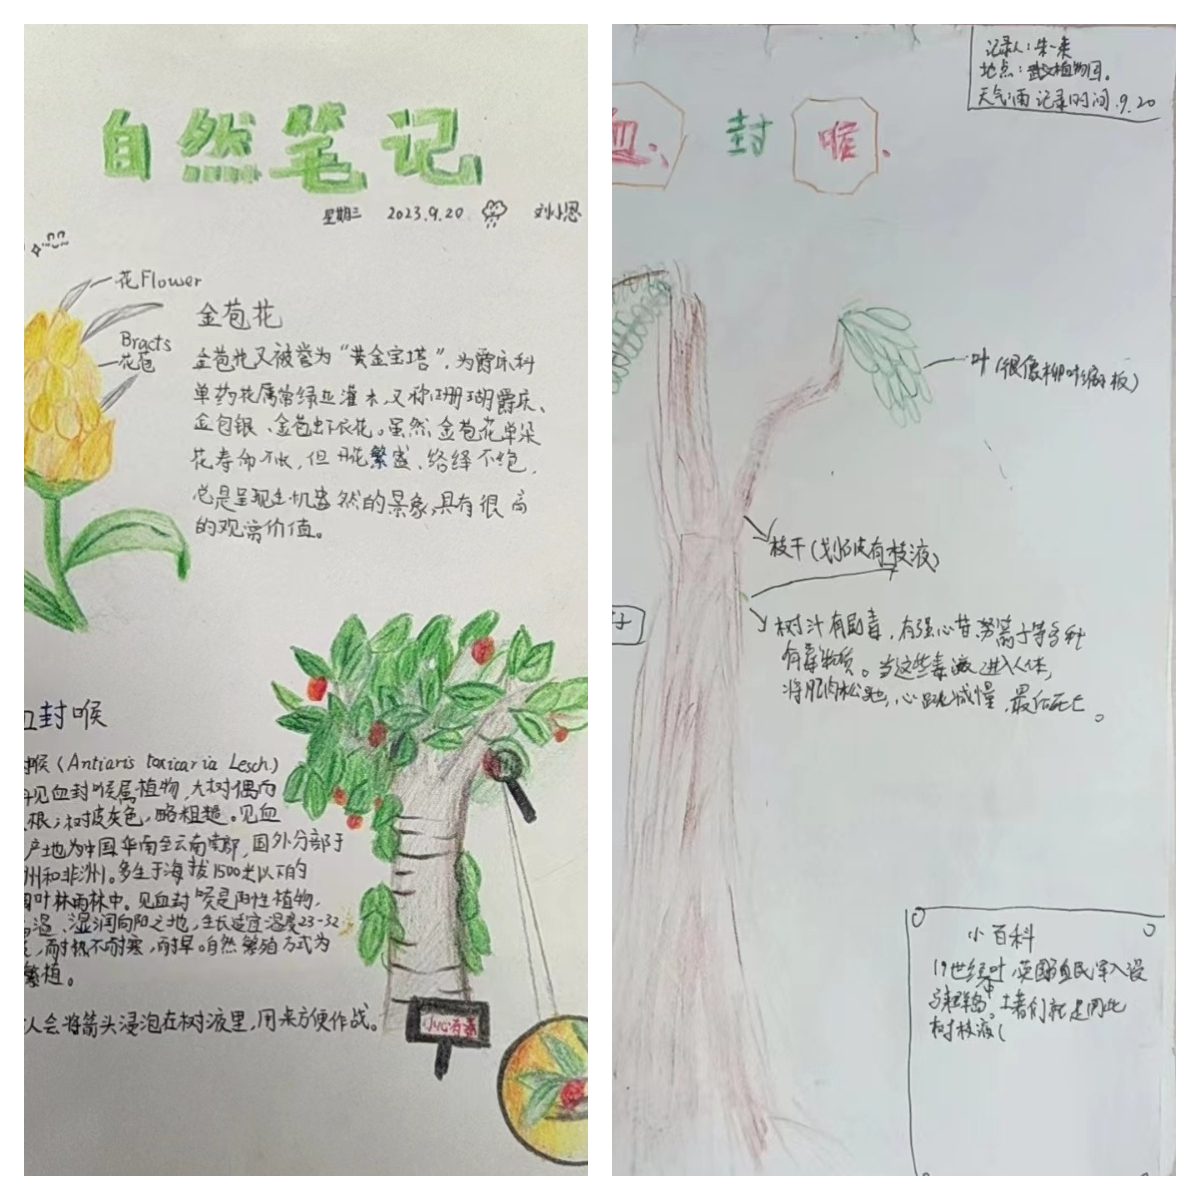 自然笔记
星期三 2023.9.20 刘小恩
花Flower
Bracts
花苞
金苞花
金苞花又被誉为“黄金宝塔”,为爵床科
单药花属常绿亚灌木,又称珊瑚爵床、
金包银、金苞虾衣花。虽然,金苞花单朵
花寿命不长,但开花繁盛、络绎不绝,
总是呈现生机盎然的景象,具有很高
的观赏价值。
血封喉
喉(Antiaris toxicaria Lesch.)
见血封喉属植物,大树偶而
根;树皮灰色,略粗糙。见血
产地为中国华南至云南南部,国外分部于
洲和非洲。多生于海拔1500米以下的
叶林雨林中。见血封喉是阳性植物,
温、湿润向阳之地,生长适宜温度23-32
,耐热不耐寒,耐旱。自然繁殖方式为
繁殖。
人会将箭头浸泡在树液里,用来方便作战。
小心有毒
记录人:朱一来
地点:武汉植物园。
天气:雨 记录时间.9.20
血、封喉、
叶(很像柳叶缩小板)
枝干(划破皮有枝液)
子
树汁有剧毒,有强心苷 等多种
有毒物质。当这些毒液进入人体,
将肌肉松弛,心跳减慢,最后死亡。
小百科
19世纪中叶 英国殖民军入侵
马来群岛。土者们就是用此
树枝液(